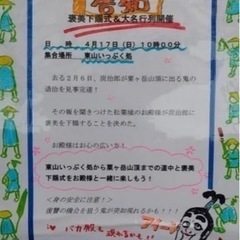 告知
褒美下賜式&大名行列開催
日 時 4月17日(日)10時00分
集合場所 東山いっぷく処
去る2月6日、炭治郎が粟ヶ岳山頂に出る鬼の
退治を見事完遂!
その報を聞きつけた松葉城のお殿様が炭治郎に
褒美を下賜することを決めた。
お殿様はお心の広い方!
東山いっぷく処から粟ヶ岳山頂までの道中と褒美
下賜式をお殿様と一緒に楽しもう!
<身の安全に注意!>
復讐の機会を狙う鬼が突如現れるかも!!!
バカ殿も